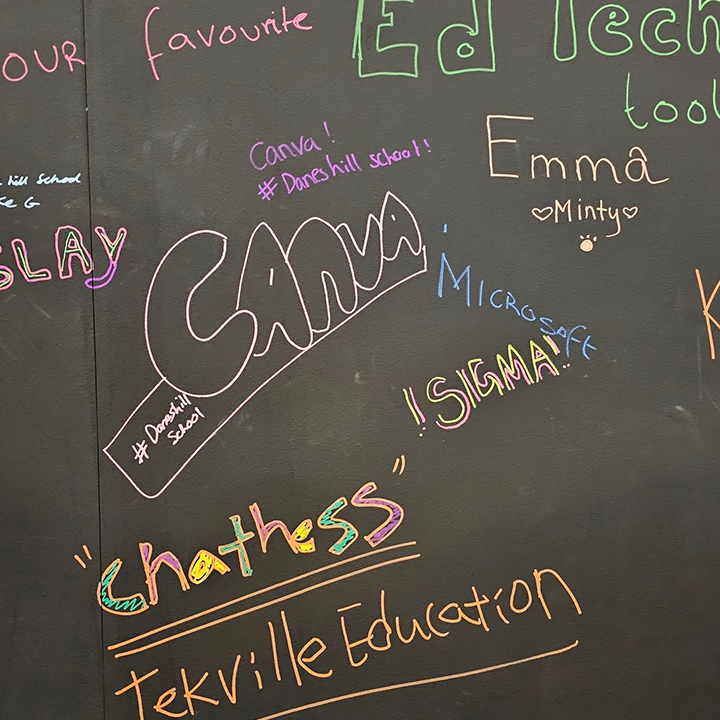 OUR favourite Ed Tech
tool
Canva!
# Daneshill school!
Emma
♡Minty♡
hill School
SLAY
CANVA
# Daneshill
School
Microsoft
!SIGMA!
"Chathess"
Tekville Education